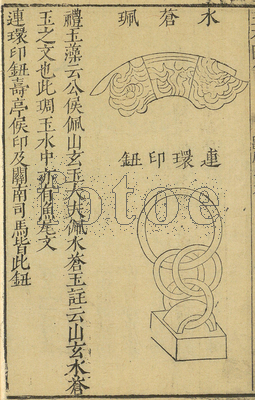 水蒼珮
連環印鈕
禮玉藻云公侯佩山玄玉大夫佩水蒼玉註云山玄水蒼
玉之文也此琱玉水中亦有魚龍文
連環印鈕壽亭侯印及關南司馬皆此鈕
fotoe